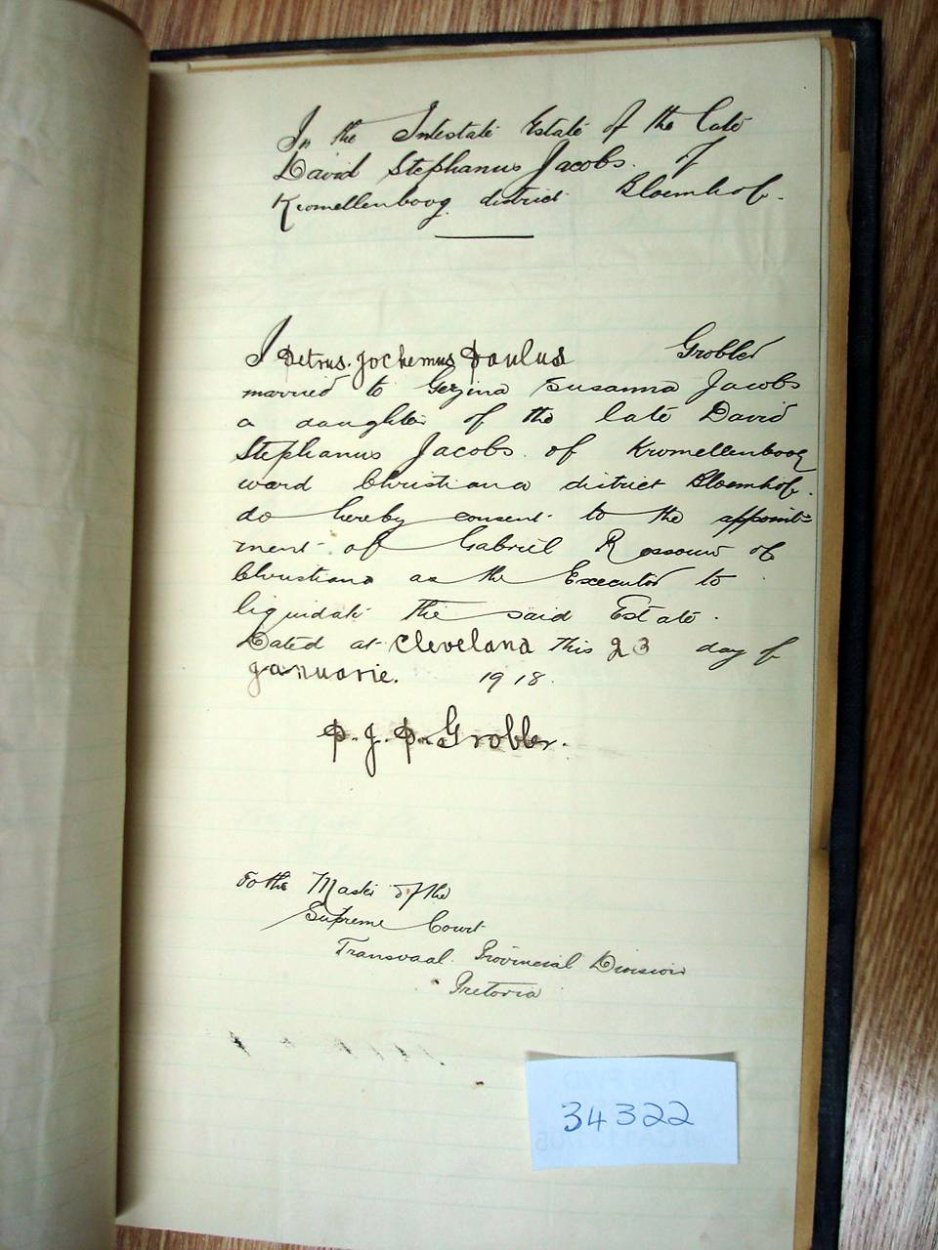 In the Intestate Estate of the late
David Stephanus Jacobs. of
Kromellenboog. district Bloemhof.
I Petrus. Jochemus Paulus Grobler
married to Gezina Susanna Jacobs
a daughter of the late David
Stephanus Jacobs. of Kromellenboog
ward Christiana district Bloemhof.
do hereby consent to the appoint-
ment of Gabriel Rossouw of
Christiana as the Executor to
liquidate the said Estate.
Dated at Cleveland this 23 day of
Januarie. 1918.
P. J. P. Grobler.
To the Master of the
Supreme Court
Transvaal Provincial Division
Pretoria
34322